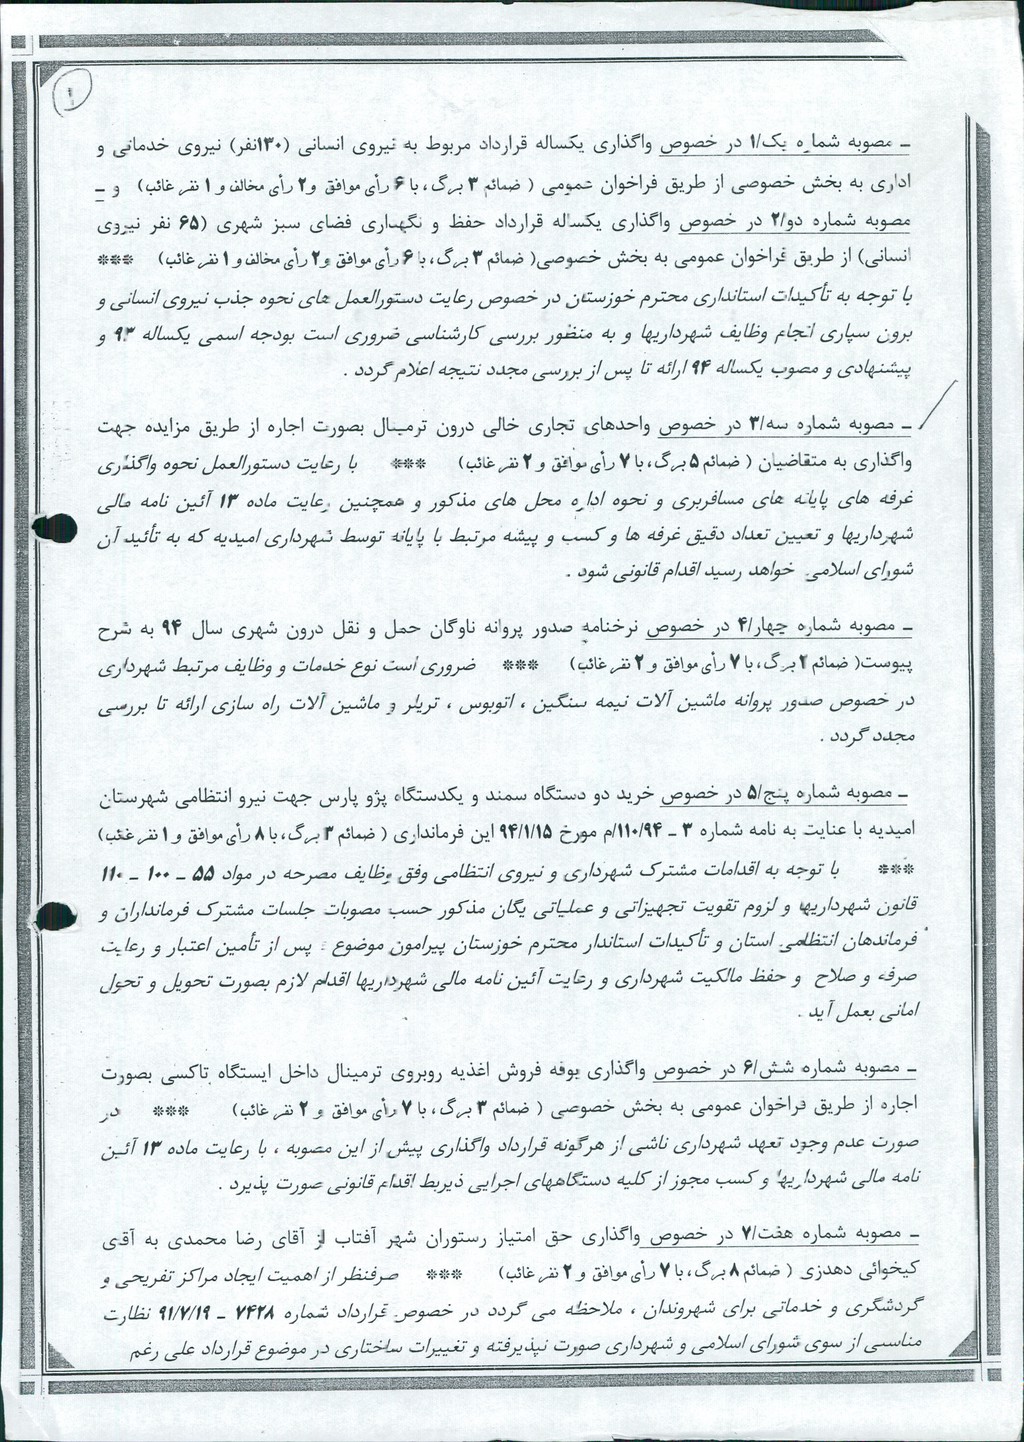 ۱
ـ مصوبه شماره یک/۱ در خصوص واگذاری یکساله قرارداد مربوط به نیروی انسانی (۱۳۰نفر) نیروی خدماتی و
اداری به بخش خصوصی از طریق فراخوان عمومی ( ضمائم ۳ برگ، با ۶ رأی موافق و۲ رأی مخالف و ۱ نفر غائب) و ـ
مصوبه شماره دو/۲ در خصوص واگذاری یکساله قرارداد حفظ و نگهداری فضای سبز شهری (۶۵ نفر نیروی
انسانی) از طریق فراخوان عمومی به بخش خصوصی( ضمائم ۳ برگ، با ۶ رأی موافق و۲ رأی مخالف و ۱ نفر غائب) ***
با توجه به تأکیدات استانداری محترم خوزستان در خصوص رعایت دستورالعمل های نحوه جذب نیروی انسانی و
برون سپاری انجام وظایف شهرداریها و به منظور بررسی کارشناسی ضروری است بودجه اسمی یکساله ۹۳ و
پیشنهادی و مصوب یکساله ۹۴ ارائه تا پس از بررسی مجدد نتیجه اعلام گردد .
ـ مصوبه شماره سه/۳ در خصوص واحدهای تجاری خالی درون ترمینال بصورت اجاره از طریق مزایده جهت
واگذاری به متقاضیان ( ضمائم ۵ برگ، با ۷ رأی موافق و ۲ نفر غائب) *** با رعایت دستورالعمل نحوه واگذاری
غرفه های پایانه های مسافربری و نحوه اداره محل های مذکور و همچنین رعایت ماده ۱۳ آئین نامه مالی
شهرداریها و تعیین تعداد دقیق غرفه ها و کسب و پیشه مرتبط با پایانه توسط شهرداری امیدیه که به تأئید آن
شورای اسلامی خواهد رسید اقدام قانونی شود .
ـ مصوبه شماره چهار/۴ در خصوص نرخنامه صدور پروانه ناوگان حمل و نقل درون شهری سال ۹۴ به شرح
پیوست( ضمائم ۲ برگ، با ۷ رأی موافق و ۲ نفر غائب) *** ضروری است نوع خدمات و وظایف مرتبط شهرداری
در خصوص صدور پروانه ماشین آلات نیمه سنگین ، اتوبوس ، تریلر و ماشین آلات راه سازی ارائه تا بررسی
مجدد گردد .
ـ مصوبه شماره پنج/۵ در خصوص خرید دو دستگاه سمند و یکدستگاه پژو پارس جهت نیرو انتظامی شهرستان
امیدیه با عنایت به نامه شماره ۳ ـ ۱۱۰/۹۴/م مورخ ۹۴/۱/۱۵ این فرمانداری ( ضمائم ۳ برگ، با ۸ رأی موافق و ۱ نفر غائب)
*** با توجه به اقدامات مشترک شهرداری و نیروی انتظامی وفق وظایف مصرحه در مواد ۵۵ ـ ۱۰۰ ـ ۱۱۰
قانون شهرداریها و لزوم تقویت تجهیزاتی و عملیاتی یگان مذکور حسب مصوبات جلسات مشترک فرمانداران و
فرماندهان انتظامی استان و تأکیدات استاندار محترم خوزستان پیرامون موضوع ؛ پس از تأمین اعتبار و رعایت
صرفه و صلاح و حفظ مالکیت شهرداری و رعایت آئین نامه مالی شهرداریها اقدام لازم بصورت تحویل و تحول
امانی بعمل آید .
ـ مصوبه شماره شش/۶ در خصوص واگذاری بوفه فروش اغذیه روبروی ترمینال داخل ایستگاه تاکسی بصورت
اجاره از طریق فراخوان عمومی به بخش خصوصی ( ضمائم ۳ برگ، با ۷ رأی موافق و ۲ نفر غائب) *** در
صورت عدم وجود تعهد شهرداری ناشی از هرگونه قرارداد واگذاری پیش از این مصوبه ، با رعایت ماده ۱۳ آئین
نامه مالی شهرداریها و کسب مجوز از کلیه دستگاههای اجرایی ذیربط اقدام قانونی صورت پذیرد .
ـ مصوبه شماره هفت/۷ در خصوص واگذاری حق امتیاز رستوران شهر آفتاب از آقای رضا محمدی به آقای
کیخوائی دهدزی ( ضمائم ۸ برگ، با ۷ رأی موافق و ۲ نفر غائب) *** صرفنظر از اهمیت ایجاد مراکز تفریحی و
گردشگری و خدماتی برای شهروندان ، ملاحظه می گردد در خصوص قرارداد شماره ۷۴۲۸ ـ ۹۱/۷/۱۹ نظارت
مناسبی از سوی شورای اسلامی و شهرداری صورت نپذیرفته و تغییرات ساختاری در موضوع قرارداد علی رغم